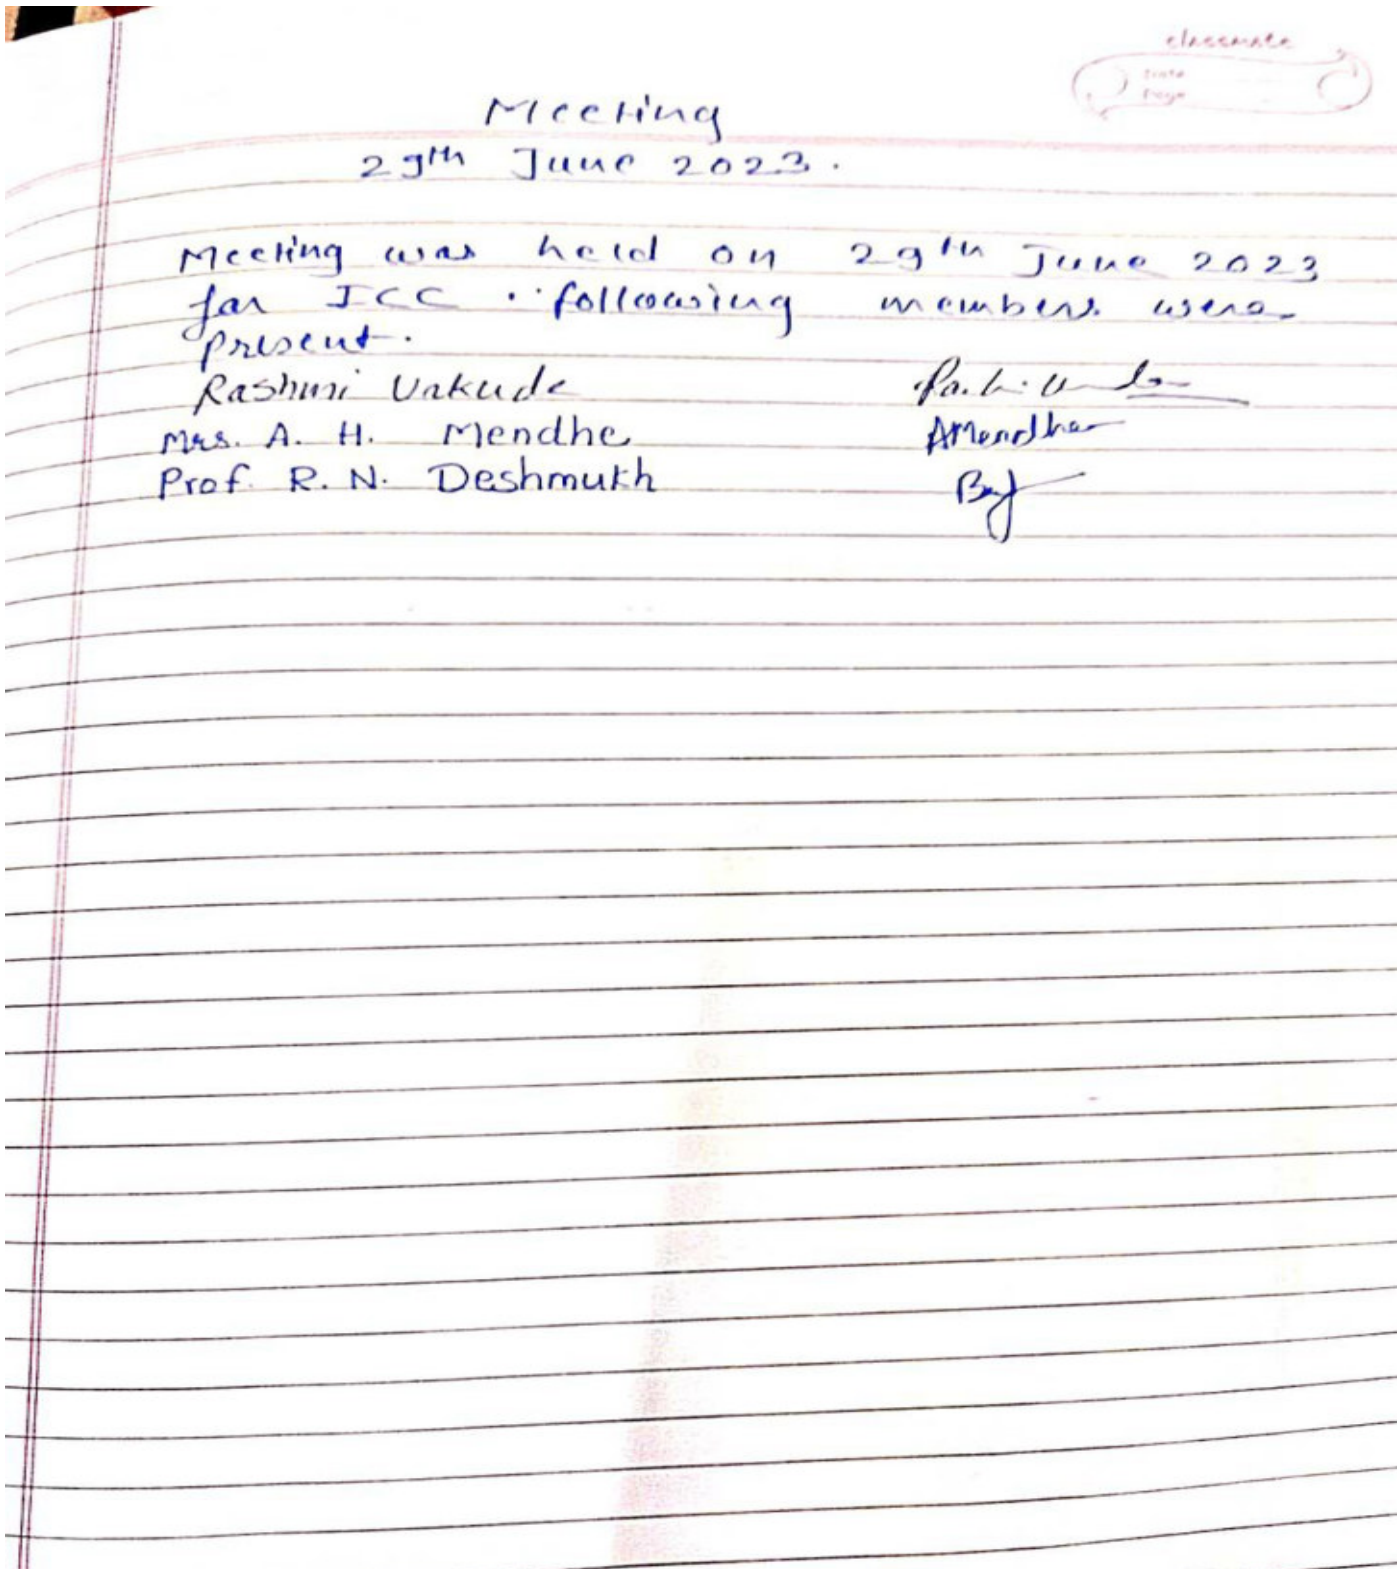 classmate
Date
Page
Meeting
29th June 2023.
Meeting was held on 29th June 2023
for ICC . following members were
present.
Rashmi Urkude
Mrs. A. H. Mendhe AMendhe
Prof. R. N. Deshmukh